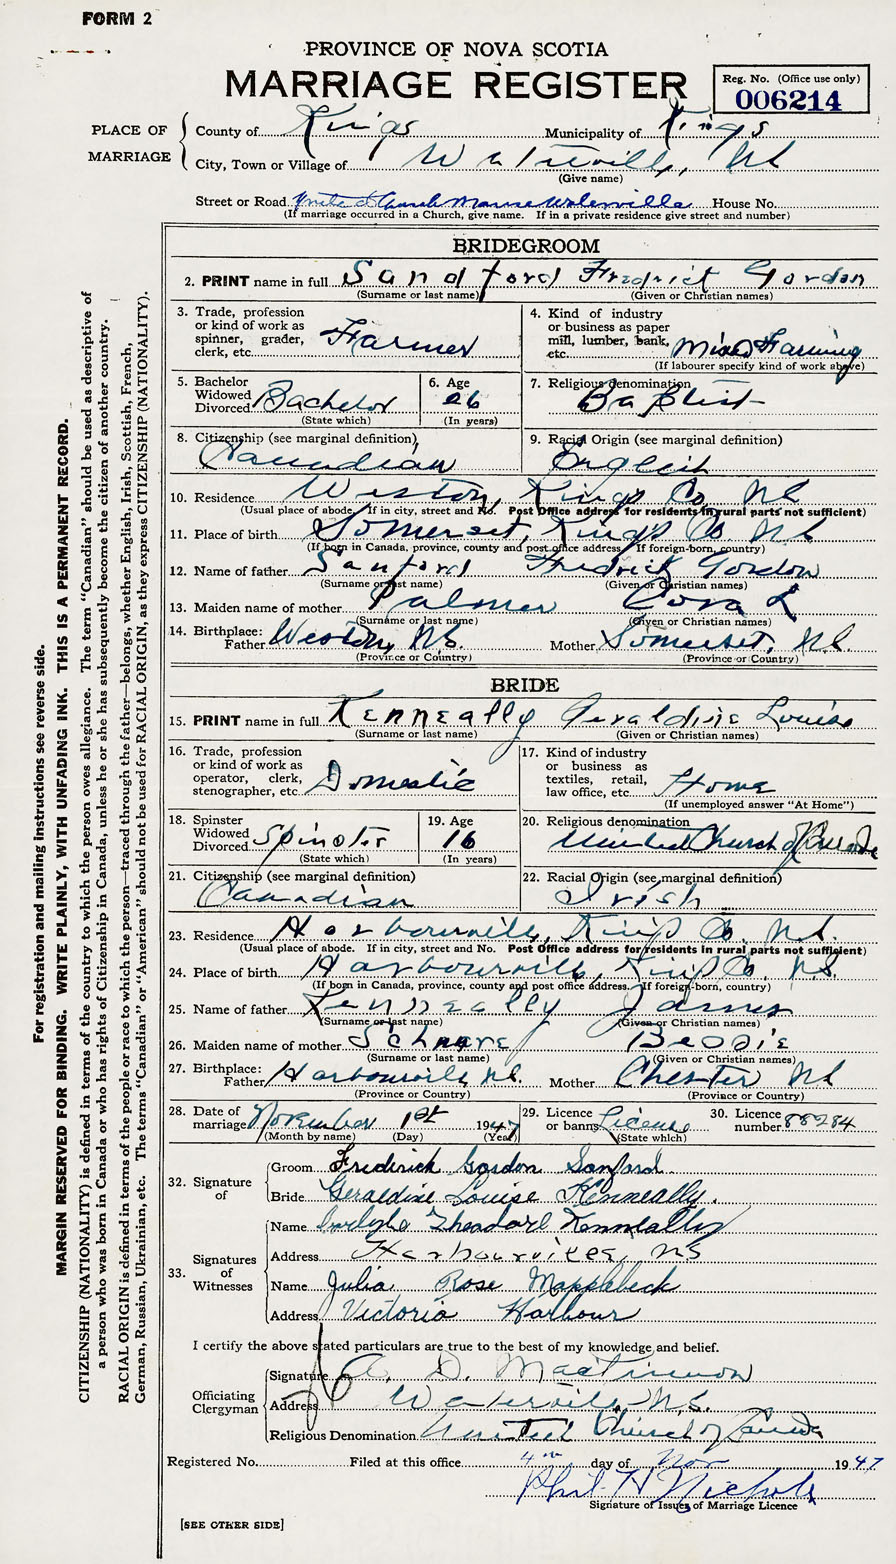 FORM 2
PROVINCE OF NOVA SCOTIA
MARRIAGE REGISTER
Reg. No. (Office use only)
006214
PLACE OF MARRIAGE
County of Kings Municipality of Kings
City, Town or Village of Waterville, NS
(Give name)
Street or Road United Church Manse Waterville House No.
(If marriage occurred in a Church, give name. If in a private residence give street and number)
BRIDEGROOM
2. PRINT name in full Sandford Fredrick Gordon
(Surname or last name) (Given or Christian names)
3. Trade, profession or kind of work as spinner, grader, clerk, etc. Farmer
4. Kind of industry or business as paper mill, lumber, bank, etc. Mixed Farming
(If labourer specify kind of work above)
5. Bachelor Widowed Divorced Bachelor
(State which)
6. Age 26
(In years)
7. Religious denomination Baptist
8. Citizenship (see marginal definition) Canadian
9. Racial Origin (see marginal definition) English
10. Residence Weston, Kings Co, NS
(Usual place of abode. If in city, street and No. Post Office address for residents in rural parts not sufficient)
11. Place of birth Somerset, Kings Co. NS
(If born in Canada, province, county and post office address. If foreign-born, country)
12. Name of father Sanford Fredrick Gordon
(Surname or last name) (Given or Christian names)
13. Maiden name of mother Palmer Cora L
(Surname or last name) (Given or Christian names)
14. Birthplace: Father Weston, N.S. Mother Somerset, N.S.
(Province or Country) (Province or Country)
BRIDE
15. PRINT name in full Kenneally Geraldine Louise
(Surname or last name) (Given or Christian names)
16. Trade, profession or kind of work as operator, clerk, stenographer, etc. Domestic
17. Kind of industry or business as textiles, retail, law office, etc. Home
(If unemployed answer "At Home")
18. Spinster Widowed Divorced Spinster
(State which)
19. Age 16
(In years)
20. Religious denomination United Church of Canada
21. Citizenship (see marginal definition) Canadian
22. Racial Origin (see marginal definition) Irish
23. Residence Harbourville, Kings Co, N.S.
(Usual place of abode. If in city, street and No. Post Office address for residents in rural parts not sufficient)
24. Place of birth Harbourville, Kings Co. N.S.
(If born in Canada, province, county and post office address. If foreign-born, country)
25. Name of father Kenneally James
(Surname or last name) (Given or Christian names)
26. Maiden name of mother Schnare Bessie
(Surname or last name) (Given or Christian names)
27. Birthplace: Father Harbourville, N.S. Mother Chester NS
(Province or Country) (Province or Country)
28. Date of marriage November 1st 1947
(Month by name) (Day) (Year)
29. Licence or banns License
(State which)
30. Licence number 88284
32. Signature of
Groom Frederick Gordon Sanford
Bride Geraldine Louise Kenneally.
33. Signatures of Witnesses
Name Theadore Kenneally
Address Harbourville, NS
Name Julia Rose Mapplebeck
Address Victoria Harbour
I certify the above stated particulars are true to the best of my knowledge and belief.
Officiating Clergyman
Signature A. D. MacKinnon
Address Waterville, N.S.
Religious Denomination United Church of Canada
Registered No. Filed at this office 4th day of Nov 1947
Phil H Nichols
Signature of Issuer of Marriage Licence
[SEE OTHER SIDE]
For registration and mailing instructions see reverse side.
MARGIN RESERVED FOR BINDING. WRITE PLAINLY, WITH UNFADING INK. THIS IS A PERMANENT RECORD.
CITIZENSHIP (NATIONALITY) is defined in terms of the country to which the person owes allegiance. The term "Canadian" should be used as descriptive of
a person who was born in Canada or who has rights of Citizenship in Canada, unless he or she has subsequently become the citizen of another country.
RACIAL ORIGIN is defined in terms of the people or race to which the person—traced through the father—belongs, whether English, Irish, Scottish, French,
German, Russian, Ukrainian, etc. The terms "Canadian" or "American" should not be used for RACIAL ORIGIN, as they express CITIZENSHIP (NATIONALITY).